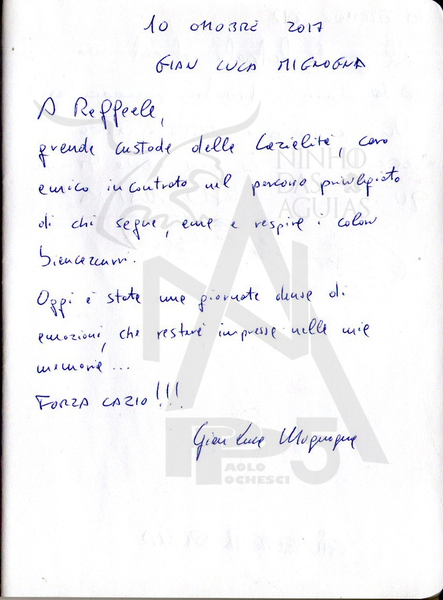 10 OTTOBRE 2017
GIAN LUCA MIGNOGNA
A Raffaele,
grande custode della Lazialità, caro
amico incontrato nel percorso privilegiato
di chi segue, ama e respira i colori
biancazzurri.
Oggi è stata una giornata densa di
emozioni, che resterà impressa nella mia
memoria...
FORZA LAZIO!!!
Gian Luca Mignogna
NINHO
DAS
AGUIAS
PP5
AOLO
OCHESCI